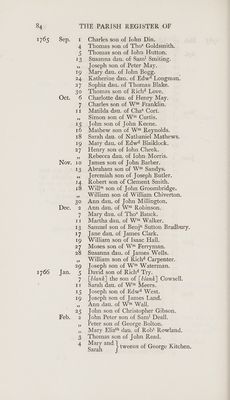 84 THE PARISH REGISTER OF
1765 Sep. 1 Charles son of John Din.
4 Thomas son of Thoˢ Goldsmith.
5 Thomas son of John Hutton.
13 Susanna dau. of Samˡ Smiting.
„ Joseph son of Peter May.
19 Mary dau. of John Bogg.
24 Katherine dau. of Edwᵈ Longman.
27 Sophia dau. of Thomas Blake.
29 Thomas son of Richᵈ Love.
Oct. 6 Charlotte dau. of Henry May.
7 Charles son of Wᵐ Franklin.
11 Matilda dau. of Chaˢ Cort.
„ Simon son of Wᵐ Curtis.
15 John son of John Keene.
16 Mathew son of Wᵐ Reynolds.
18 Sarah dau. of Nathaniel Mathews.
19 Mary dau. of Edwᵈ Blaiklock.
27 Henry son of John Cheek.
„ Rebecca dau. of John Morris.
Nov. 10 James son of John Barber.
13 Abraham son of Wᵐ Sandys.
„ Jeremiah son of Joseph Butler.
14 Robert son of Clement Smith.
18 Willᵐ son of John Groombridge.
„ William son of William Chiverton.
30 Ann dau. of John Millington.
Dec. 2 Ann dau. of Wᵐ Robinson.
7 Mary dau. of Thoˢ Bauck.
11 Martha dau. of Wᵐ Walker.
13 Samuel son of Benjⁿ Sutton Bradbury.
17 Jane dau. of James Clark.
19 William son of Isaac Hall.
27 Moses son of Wᵐ Ferryman.
28 Susanna dau. of James Wells.
„ William son of Richᵈ Carpenter.
29 Joseph son of Wᵐ Waterman.
1766 Jan. 5 David son of Richᵈ Try.
7 [blank] the son of [blank] Cowsell.
11 Sarah dau. of Wᵐ Meers.
15 Joseph son of Edwᵈ West.
19 Joseph son of James Land.
„ Ann dau. of Wᵐ Wall.
25 John son of Christopher Gibson.
Feb. 2 John Peter son of Samˡ Deall.
„ Peter son of George Bolton.
„ Mary Elizᵗʰ dau. of Robᵗ Rowland.
3 Thomas son of John Read.
4 Mary and
Sarah } tweens of George Kitchen.